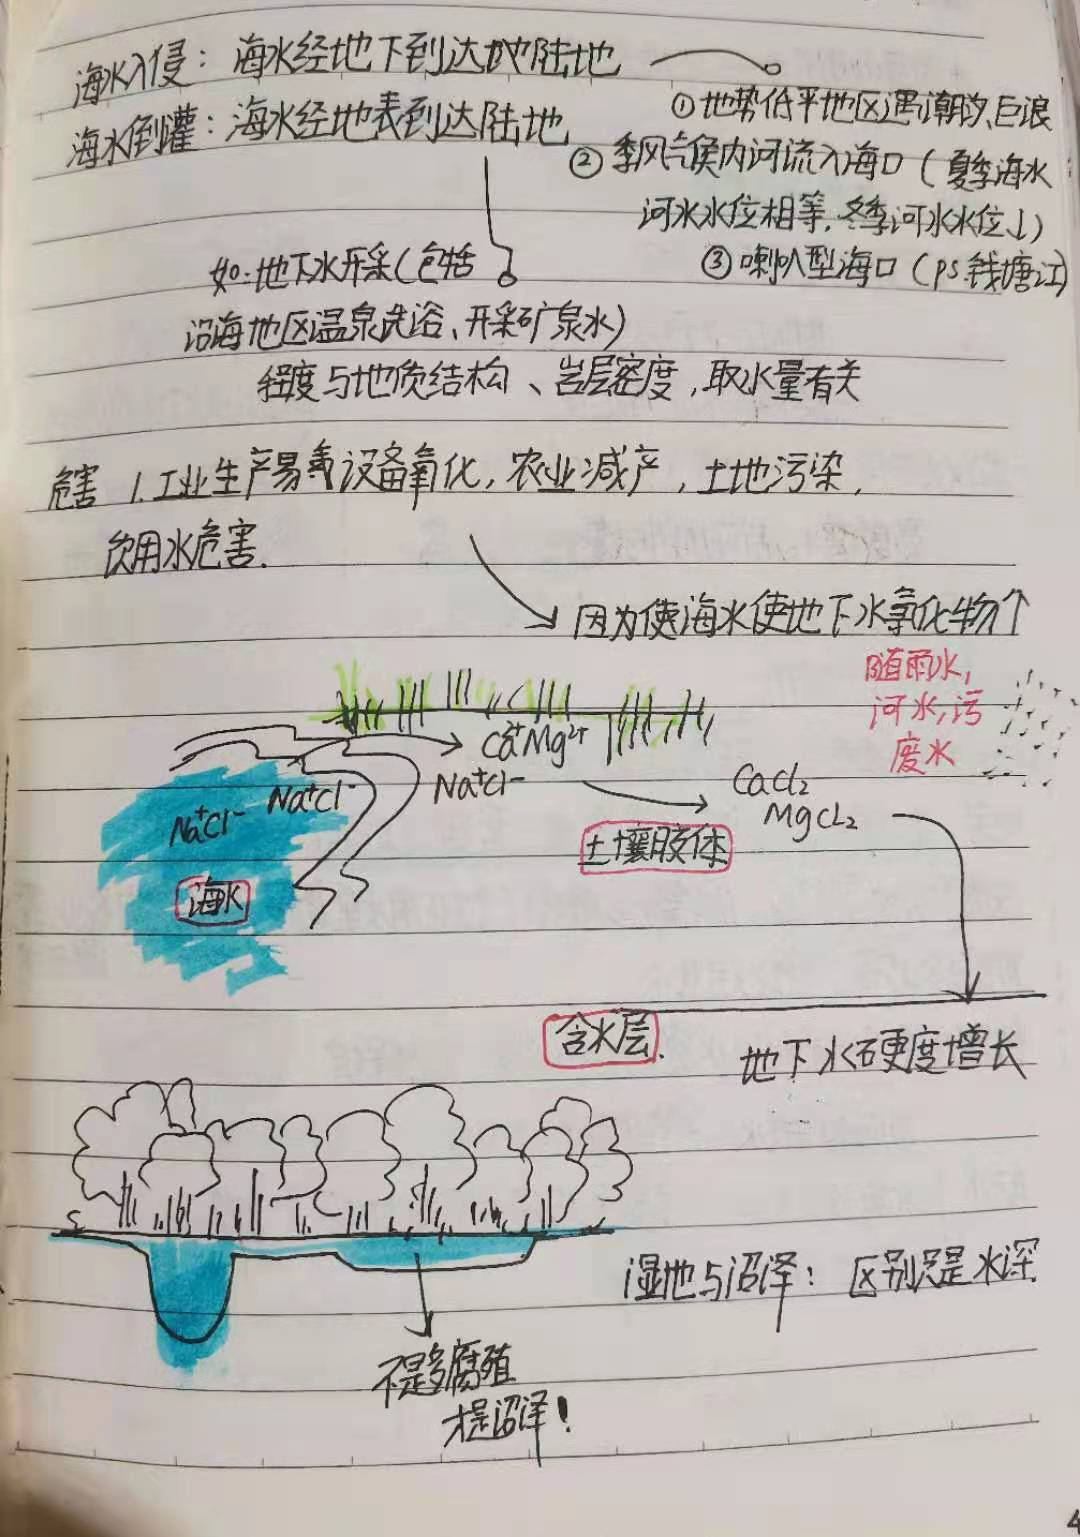 海水入侵：海水经地下到达陆地
海水倒灌：海水经地表到达陆地
①地势低平地区遇潮汐、巨浪
②季风气侯内河流入海口（夏季海水
河水水位相等，冬季河水水位↓）
③喇叭型海口（ps.钱塘江）
如：地下水开采（包括
沿海地区温泉洗浴、开采矿泉水）
程度与地质结构、岩层密度，取水量有关
危害 1.工业生产易设备氧化，农业减产，土地污染，
饮用水危害.
因为使海水使地下水氯化物↑
随雨水，
河水，污
废水
Ca⁺Mg²⁺
Na⁺Cl⁻
Na⁺Cl⁻
Na⁺Cl⁻
CaCl₂
MgCl₂
土壤胶体
海水
含水层.
地下水硬度增长
湿地与沼泽：区别只是水深
不是多腐殖
才是沼泽！
4